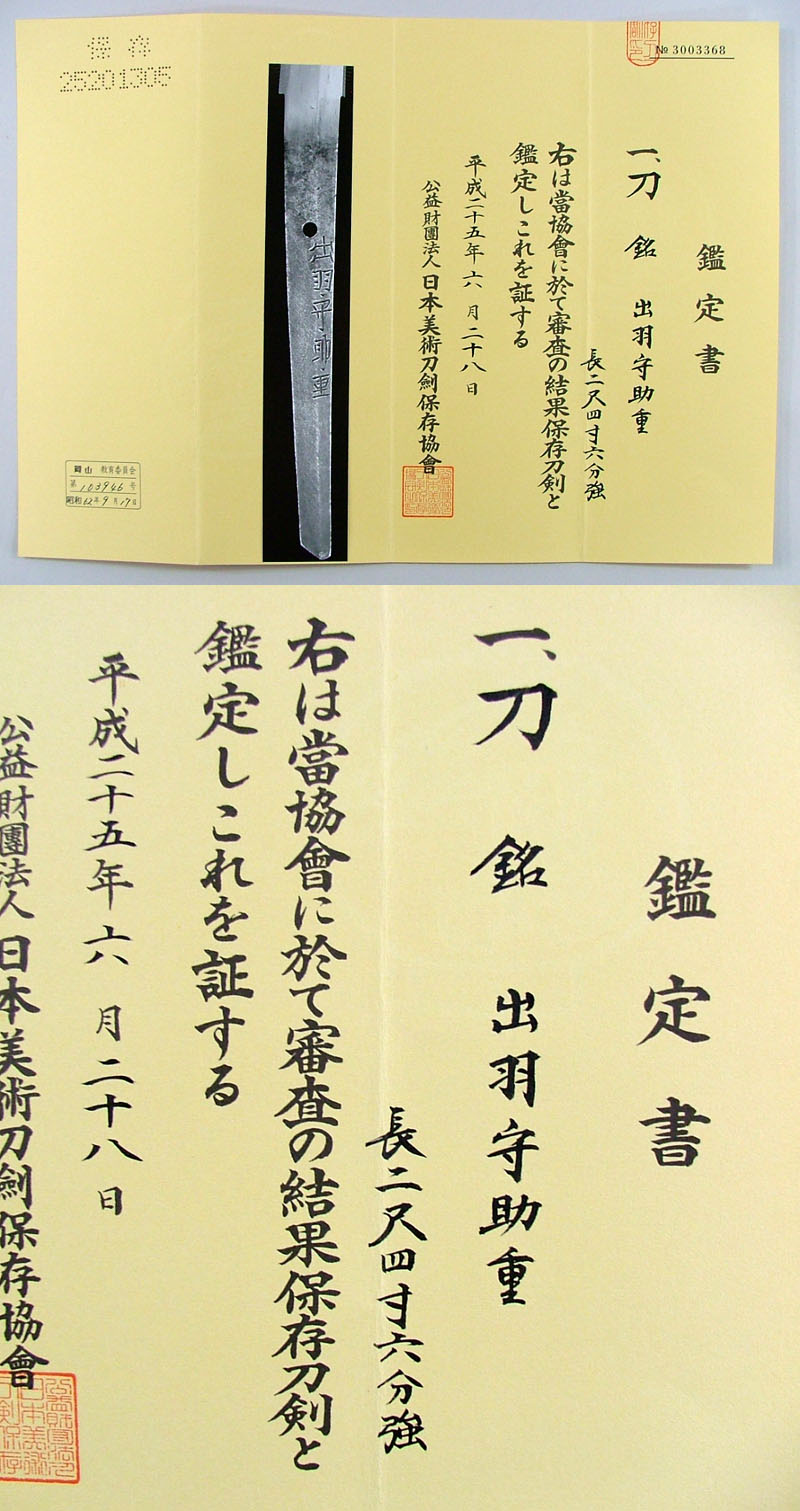 № 3003368
鑑定書
一、刀 銘 出羽守助重
長二尺四寸六分強
右は當協會に於て審査の結果保存刀剣と
鑑定しこれを証する
平成二十五年六月二十八日
公益財團法人日本美術刀劍保存協會
出羽守助重
保存
25201305
岡山 教育委員会
第 103946 号
昭和 62年 9月 17日
鑑定書
一、刀 銘 出羽守助重
長二尺四寸六分強
右は當協會に於て審査の結果保存刀剣と
鑑定しこれを証する
平成二十五年六月二十八日
公益財團法人日本美術刀劍保存協會